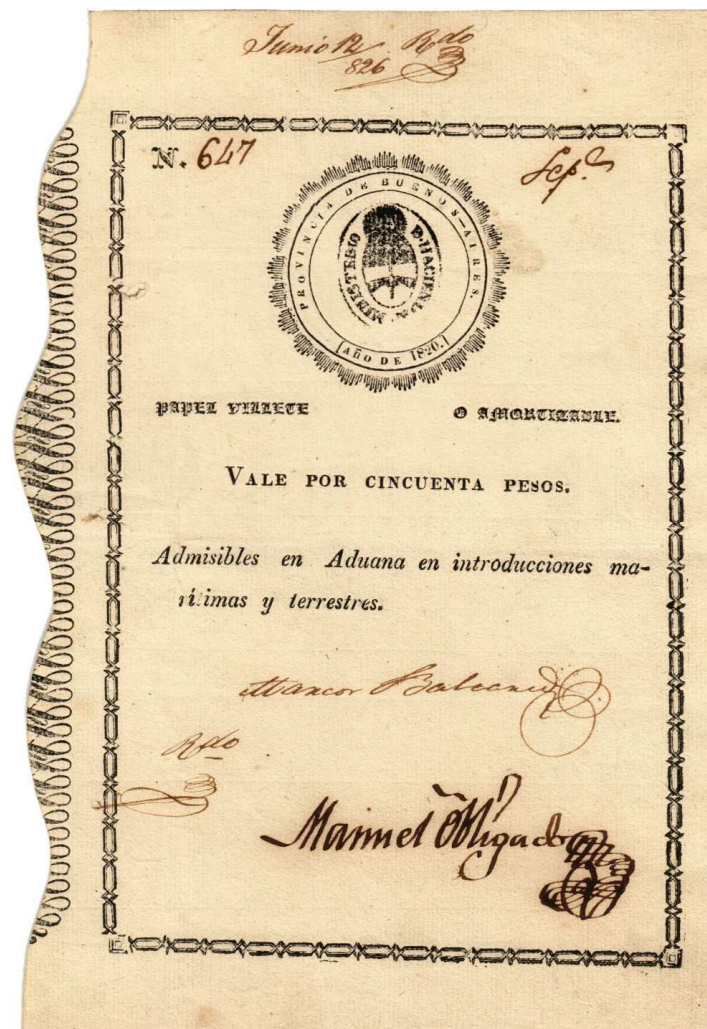 Junio 12 Rdo
826
N. 647
PROVINCIA DE BUENOS-AIRES.
MINISTERIO D. HACIENDA
AÑO DE 1820.
PAPEL VILLETE O AMORTIZABLE.
VALE POR CINCUENTA PESOS.
Admisibles en Aduana en introducciones ma-
rítimas y terrestres.
Rdo
Manuel Obligado